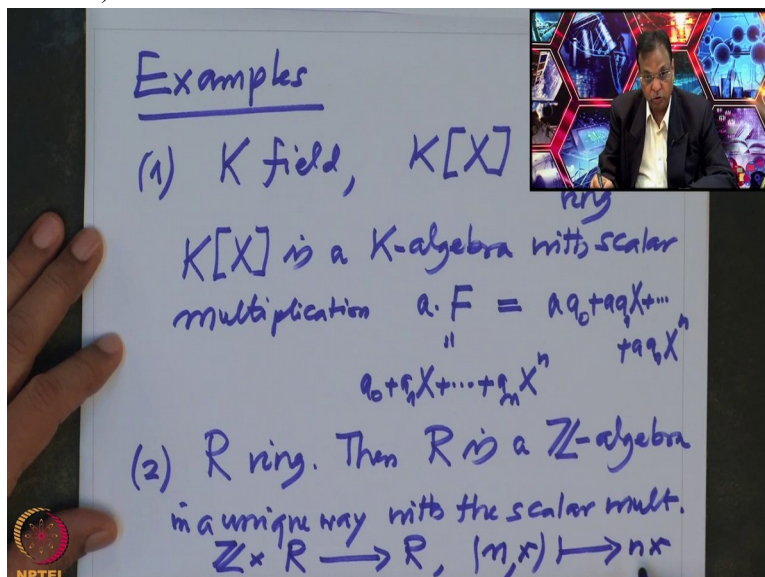 Examples
(1) K field, K[X]
ring
K[X] is a K-algebra with scalar
multiplication a. F = aa₀+aa₁X+...
+aaₙXⁿ
"
a₀+a₁X+...+aₙXⁿ
(2) R ring. Then R is a ℤ-algebra
in a unique way with the scalar mult.
ℤ × R ⟶ R, (n,x) ⟼ nx
NPTEL